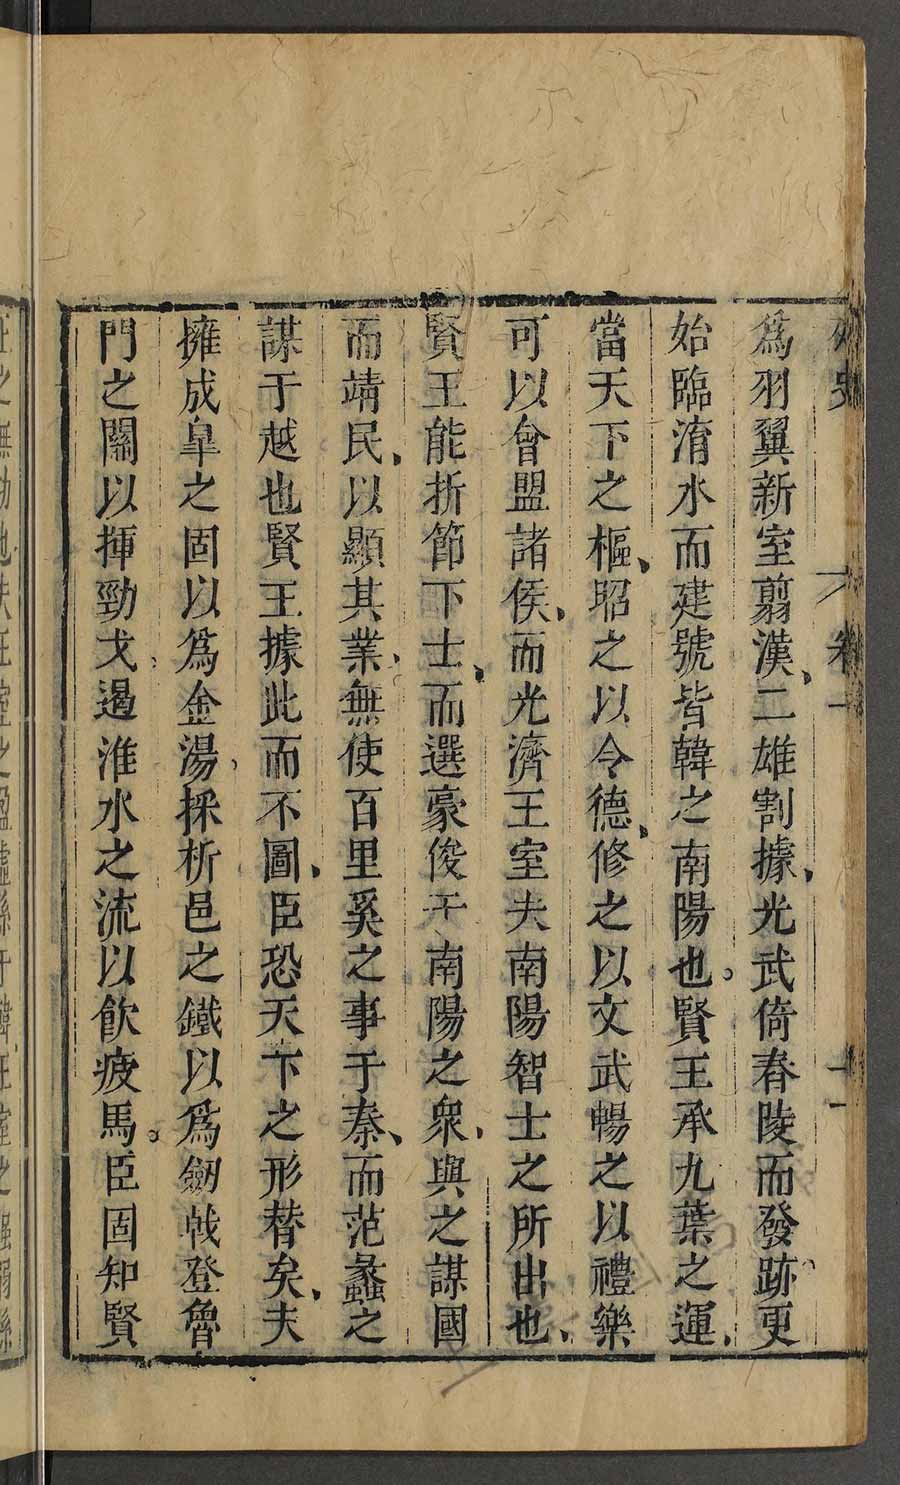 卷一
爲羽翼新室翦漢二雄割據光武倚舂陵而發跡更
始臨淯水而建號皆韓之南陽也賢王承九葉之運
當天下之樞昭之以令德修之以文武暢之以禮樂
可以會盟諸侯而光濟王室夫南陽智士之所出也
賢王能折節下士而選豪俊于南陽之衆與之謀國
而靖民以顯其業無使百里奚之事于秦而范蠡之
謀于越也賢王據此而不圖臣恐天下之形替矣夫
擁成皐之固以爲金湯採析邑之鐵以爲劒戟登魯
門之關以揮勁戈遏淮水之流以飲疲馬臣固知賢